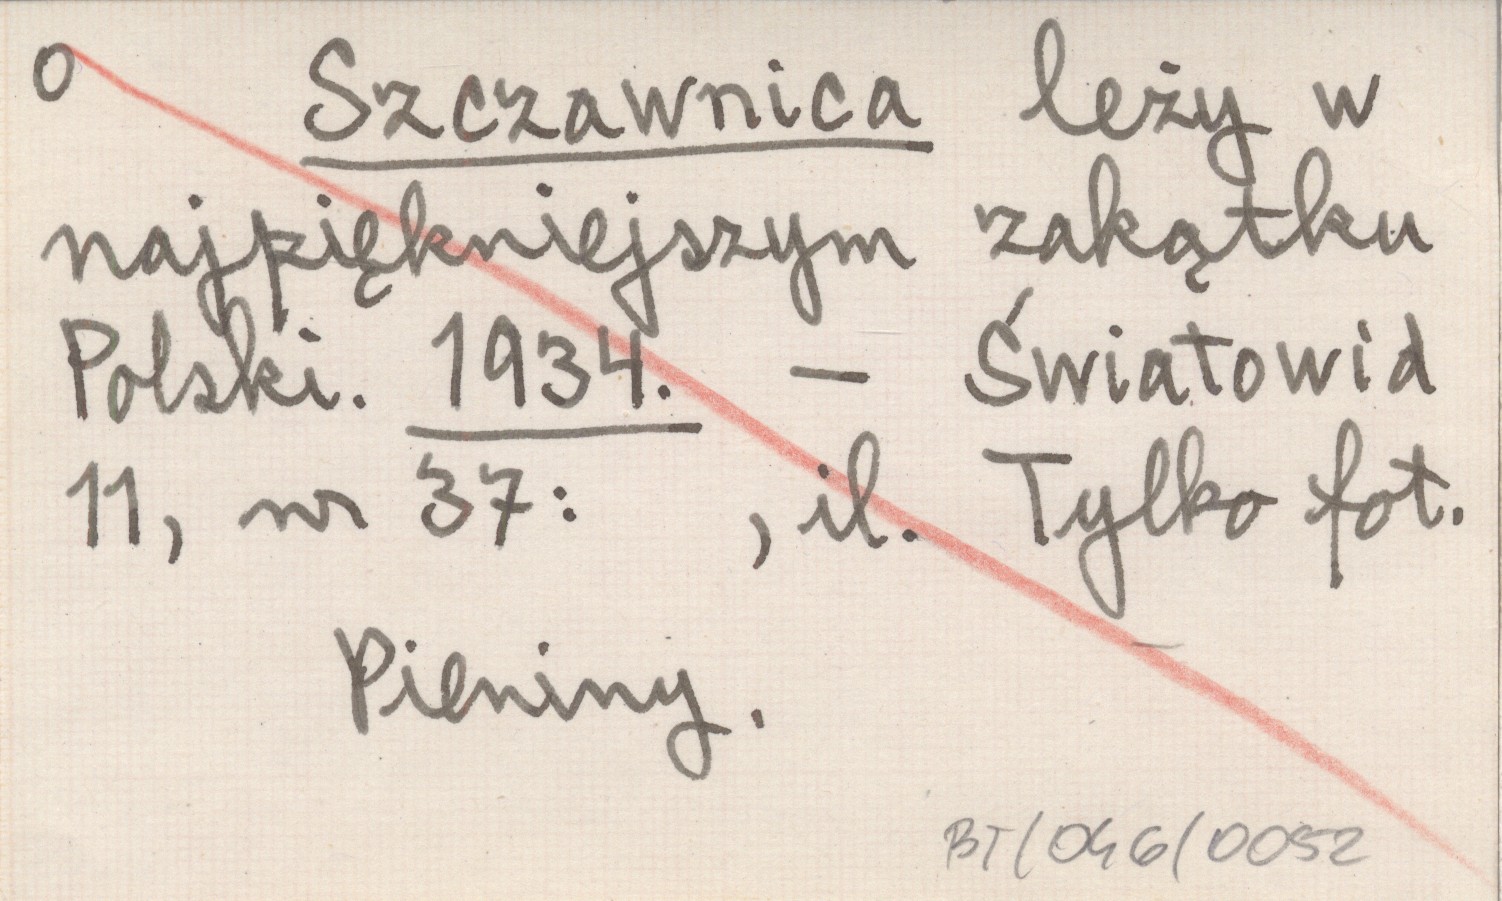 O Szczawnica leży w
najpiękniejszym zakątku
Polski. 1934. — Światowid
11, nr 37: , il. Tylko fot.
Pieniny.
BT/046/0052